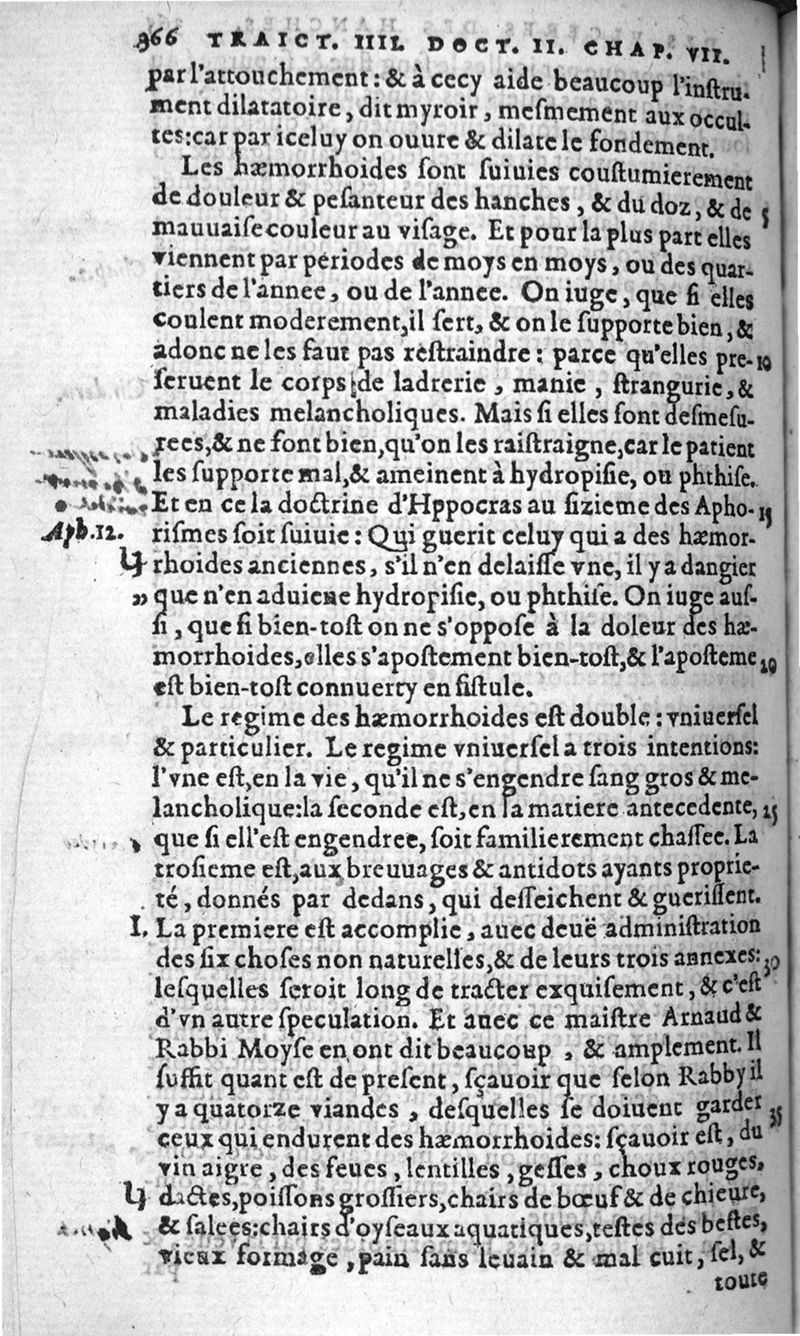 366 TRAICT. IIII. DOCT. II. CHAP. VII.
par l'attouchement: & à cecy aide beaucoup l'inſtru-
ment dilatatoire, dit myroir, meſmement aux occul-
tes: car par iceluy on ouure & dilate le fondement.
Les hæmorrhoides ſont ſuiuies couſtumierement
de douleur & peſanteur des hanches, & du doz, & de 5
mauuaiſe couleur au viſage. Et pour la plus part elles
viennent par periodes de moys en moys, ou des quar-
tiers de l'annee, ou de l'annee. On iuge, que ſi elles
coulent moderement, il ſert, & on le ſupporte bien, &
adonc ne les faut pas reſtraindre: parce qu'elles pre- 10
ſeruent le corps de ladrerie, manie, ſtrangurie, &
maladies melancholiques. Mais ſi elles ſont deſmeſu-
rees, & ne font bien, qu'on les raiſtraigne, car le patient
les ſupporte mal, & ameinent à hydropiſie, ou phthiſe.
Et en ce la doctrine d'Hppocras au ſizieme des Apho- 15
Aph. 12. riſmes ſoit ſuiuie: Qui guerit celuy qui a des hæmor-
rhoides anciennes, s'il n'en delaiſſe vne, il y a dangier
" que n'en aduiene hydropiſie, ou phthiſe. On iuge auſ-
ſi, que ſi bien-toſt on ne s'oppoſe à la doleur des hæ-
morrhoides, elles s'apoſtement bien-toſt, & l'apoſteme 20
eſt bien-toſt connuerty en fiſtule.
Le regime des hæmorrhoides eſt double: vniuerſel
& particulier. Le regime vniuerſel a trois intentions:
l'vne eſt, en la vie, qu'il ne s'engendre ſang gros & me-
lancholique: la ſeconde eſt, en la matiere antecedente, 25
que ſi ell'eſt engendree, ſoit familierement chaſſee. La
troſieme eſt, aux breuuages & antidots ayants proprie-
té, donnés par dedans, qui deſſeichent & gueriſſent.
I. La premiere eſt accomplie, auec deuë adminiſtration
des ſix choſes non naturelles, & de leurs trois annexes: 30
leſquelles ſeroit long de tracter exquiſement, & c'eſt
d'vn autre ſpeculation. Et auec ce maiſtre Arnaud &
Rabbi Moyſe en ont dit beaucoup, & amplement. Il
ſuffit quant eſt de preſent, ſçauoir que ſelon Rabby il
y a quatorze viandes, deſquelles ſe doiuent garder 35
ceux qui endurent des hæmorrhoides: ſçauoir eſt, du
vin aigre, des feues, lentilles, geſſes, choux rouges,
dactes, poiſſons groſſiers, chairs de bœuf & de chieure,
& ſalees: chairs d'oyſeaux aquatiques, teſtes des beſtes,
vieux formage, pain ſans leuain & mal cuit, ſel, &
toute